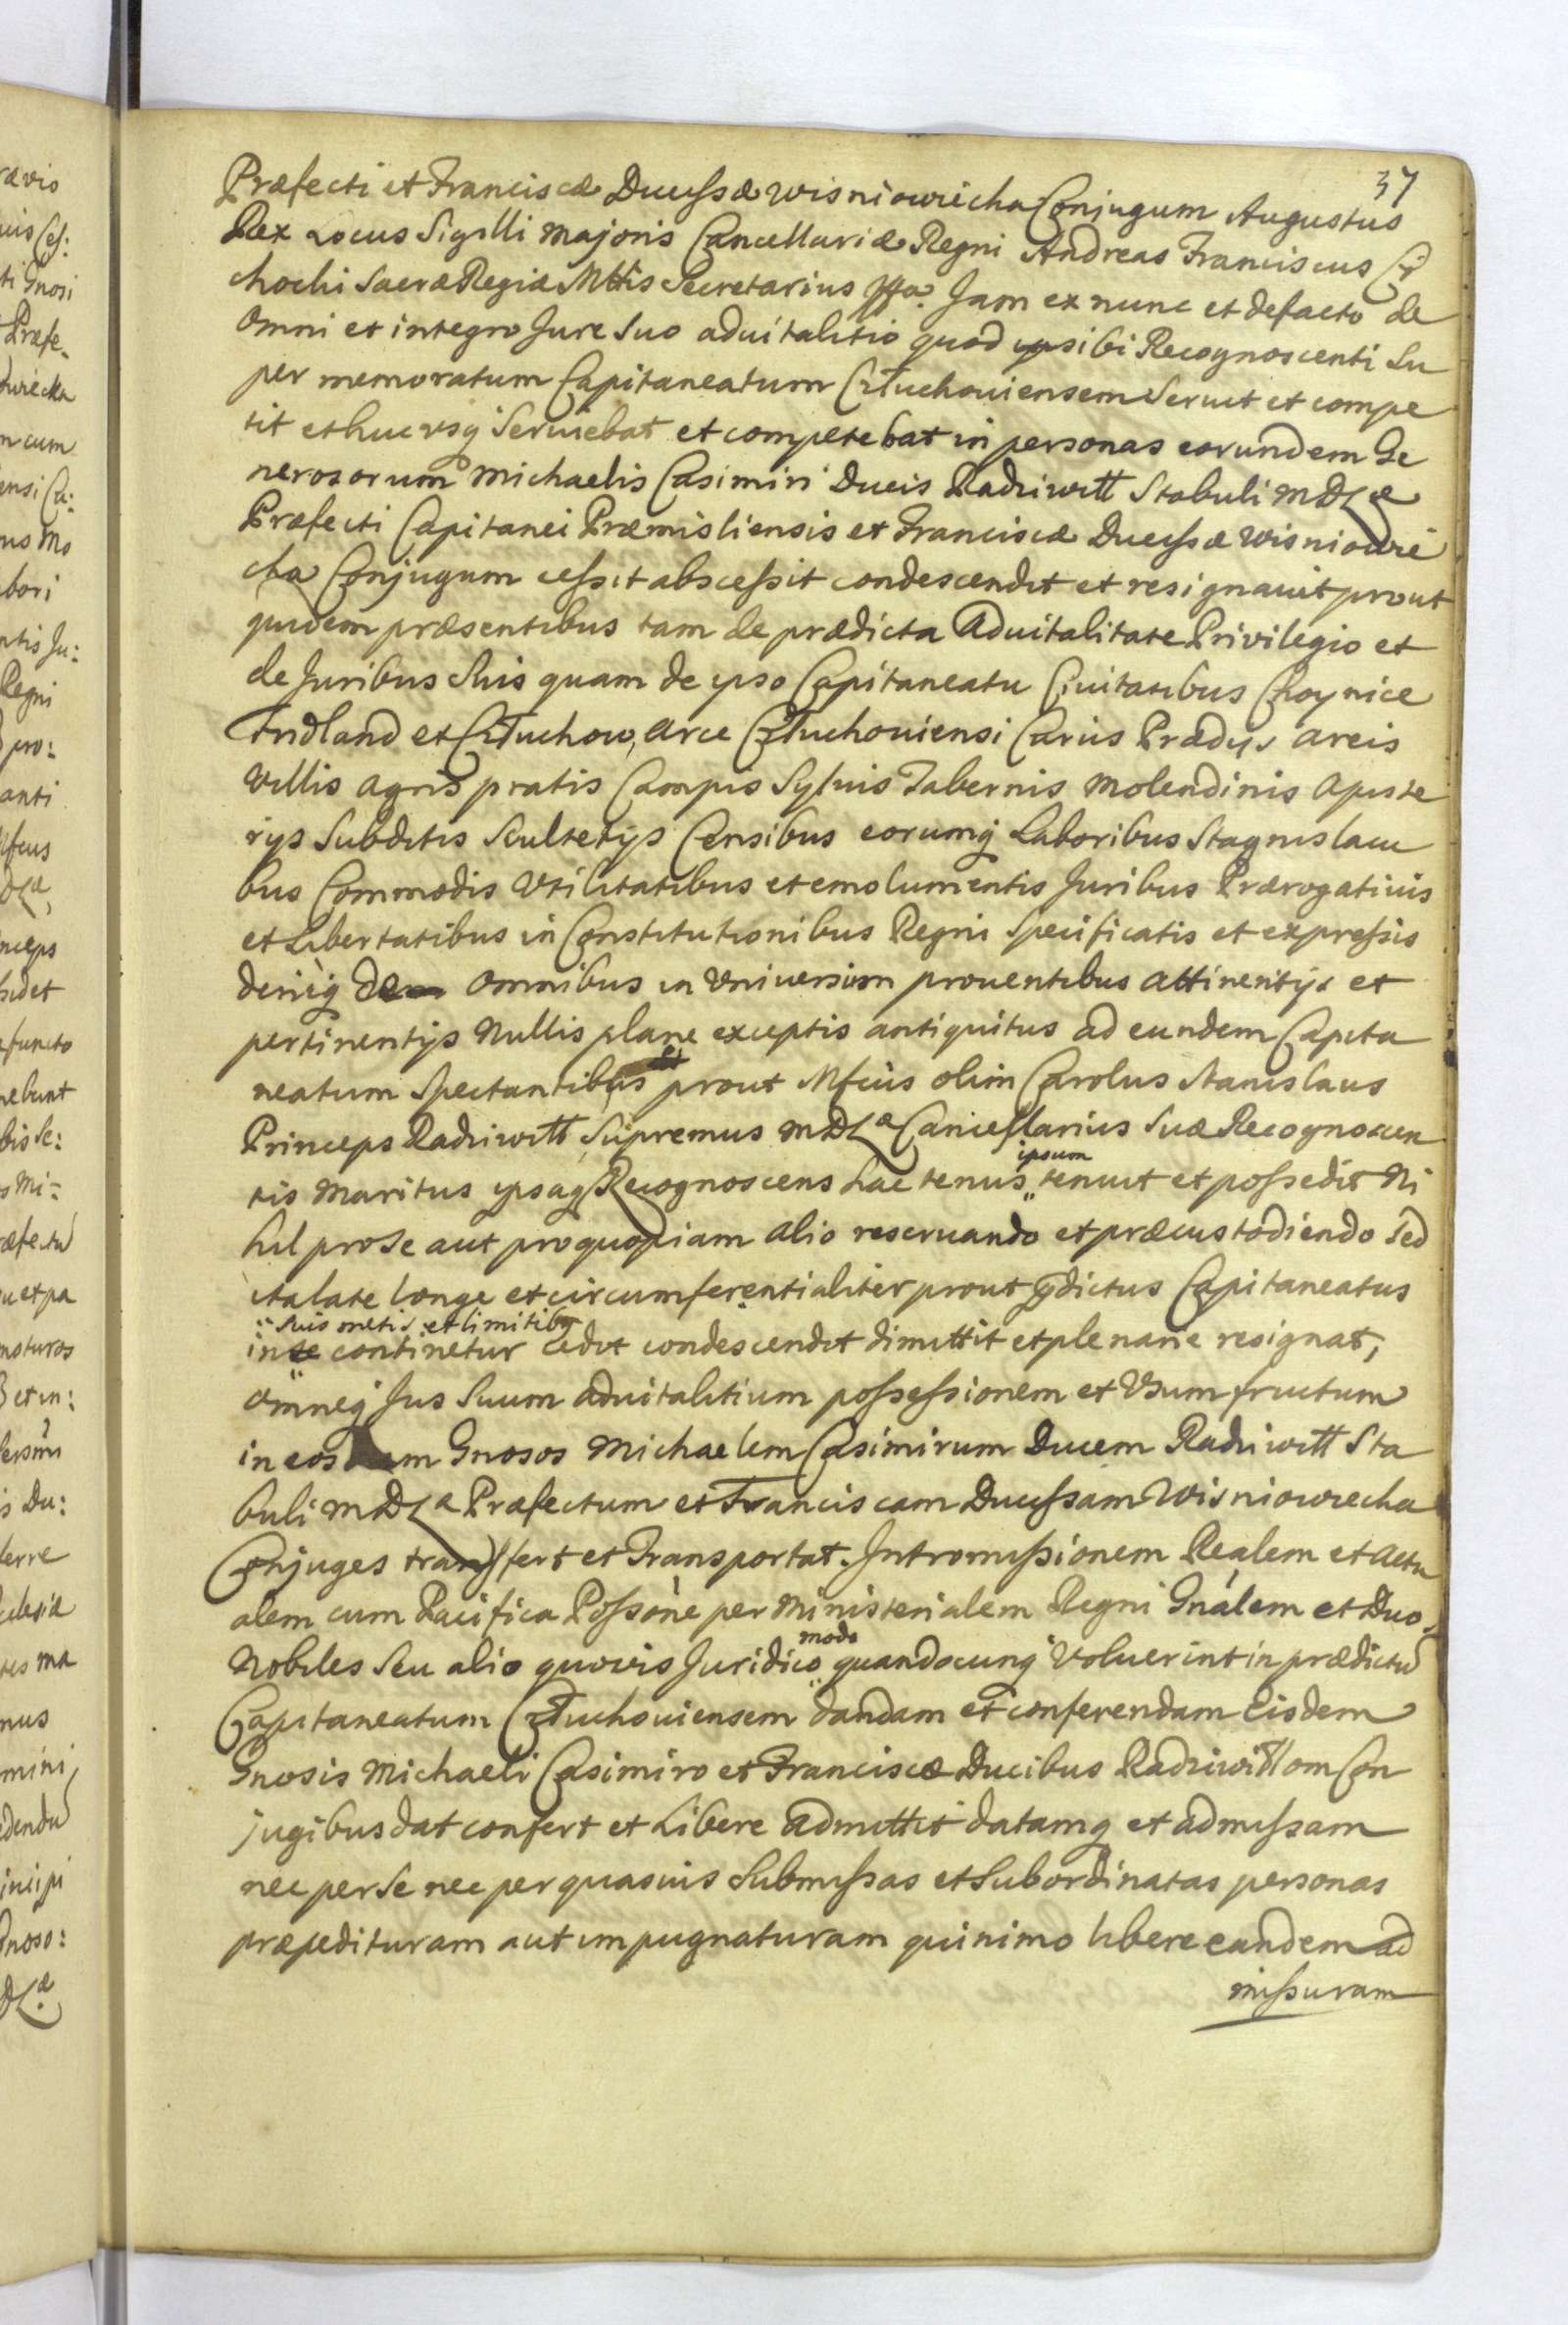 37
Præfecti et Franciscæ Ducissæ Wisniowiecka Conjugum Augustus
Rex Locus Sigilli Majoris Cancellariæ Regni Andreas Franciscus Ci
chocki Sacræ Regiæ Mttis Secretarius Jam ex nunc et defacto de
omni et integro Jure Suo aduitalitio quod ipsi sibi Recognoscenti Su
per memoratum Capitaneatum Człuchouiensem Seruit et compe
tit et huc usq Seruiebat et competebat in personas eorundem Ge
nerosorum Michaelis Casimiri Ducis Radziwiłł Stabuli MDLæ
Præfecti Capitanei Præmisliensis et Franciscæ Ducissæ Wisniowie
cka Conjugum cessit abscessit condescendit et resignauit prout
quidem præsentibus tam de prædicta Aduitalitate Privilegio et
de Juribus Suis quam de ypso Capitaneatu Ciuitatibus Choynice
Fridland et Człuchow, Arce Człuchouiensi Curiis Prædijs areis
Villis agris pratis Campis Syluis Tabernis Molendinis apiste
rijs Subditis Scultetijs Censibus eorumq Laboribus Stagnis lacu
bus Commodis Vtilitatibus et emolumentis Juribus Prærogatiuis
et Libertatibus in Constitutionibus Regni Specificatis et expressis
deniq de omnibus in Vniuersum prouentibus attinentijs et
pertinentijs Nullis plane exceptis antiquitus ad eundem Capita
neatum Spectantibus et prout Mfcus olim Carolus Stanislaus
Princeps Radziwiłł Supremus MDLæ Cancellarius Suæ Recognoscen
ipsum
tis Maritus ypsaq Recognoscens hac tenus tenuit et possedit Ni
hil pro Se aut pro quopiam alio reseruando et præcustodiendo Sed
ita late longe et circumferentialiter prout pdictus Capitaneatus
Suis metis et limitibq
in se continetur cedit condescendit dimittit et plenarie resignat,
omneq Jus Suum aduitalitium possessionem et Vsum fructum
in eosdem Gnosos Michaelem Casimirum Ducem Radziwiłł Sta
buli MDLæ Præfectum et Franciscam Ducissam Wisniowiecka
Conjuges transfert et Transportat. Intromissionem Realem et actu
alem cum Pacifica Possone per Ministerialem Regni Gnalem et Duo
modo
Nobiles Seu alio quovis Juridico quandocunq Voluerint in prædictu
Capitaneatum Człuchouiensem dandam et conferendam Eisdem
Gnosis Michaeli Casimiro et Franciscæ Ducibus Radziwiłłom Con
jugibus dat confert et Libere admittit datamq et admissam
nec per Se nec per quasuis Submissas et Subordinatas personas
præpedituram aut impugnaturam quinimo libere eandem ad
missuram